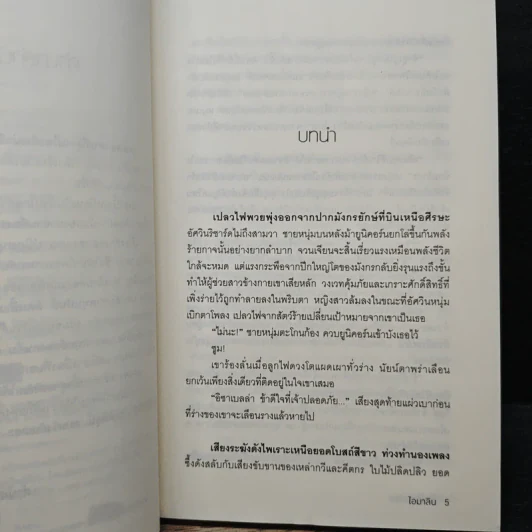 บทนำ
เปลวไฟพวยพุ่งออกจากปากมังกรยักษ์ที่บินเหนือศีรษะ
อัศวินริชาร์ดไม่ถึงสามวา ชายหนุ่มบนหลังม้ายูนิคอร์นยกโล่ขึ้นกันพลัง
ร้ายกาจนั้นอย่างยากลำบาก จวนเจียนจะสิ้นเรี่ยวแรงเหมือนพลังชีวิต
ใกล้จะหมด แต่แรงกระพือจากปีกใหญ่โตของมังกรกลับยิ่งรุนแรงถึงขั้น
ทำให้ผู้ช่วยสาวข้างกายเขาเสียหลัก วงเวทคุ้มภัยและเกราะศักดิ์สิทธิ์ที่
เพิ่งร่ายไว้ถูกทำลายลงในพริบตา หญิงสาวล้มลงในขณะที่อัศวินหนุ่ม
เบิกตาโพลง เปลวไฟจากสัตว์ร้ายเปลี่ยนเป้าหมายจากเขาเป็นเธอ
“ไม่นะ!” ชายหนุ่มตะโกนก้อง ควบยูนิคอร์นเข้าบังเธอไว้
ซูม!
เขาร้องลั่นเมื่อลูกไฟดวงโตแผดเผาทั่วร่าง นัยน์ตาพร่าเลือน
ยกเว้นเพียงสิ่งเดียวที่ติดอยู่ในใจเขาเสมอ
“อิซาเบลล่า ข้าดีใจที่เจ้าปลอดภัย...” เสียงสุดท้ายแผ่วเบาก่อน
ที่ร่างของเขาจะเลือนรางแล้วหายไป
เสียงระฆังดังไพเราะเหนือยอดโบสถ์สีขาว ท่วงทำนองเพลง
ซึ้งดังสลับกับเสียงขับขานของเหล่ากวีและคีตกร ใบไม้ปลิดปลิว ยอด
ไอมาลิน 5